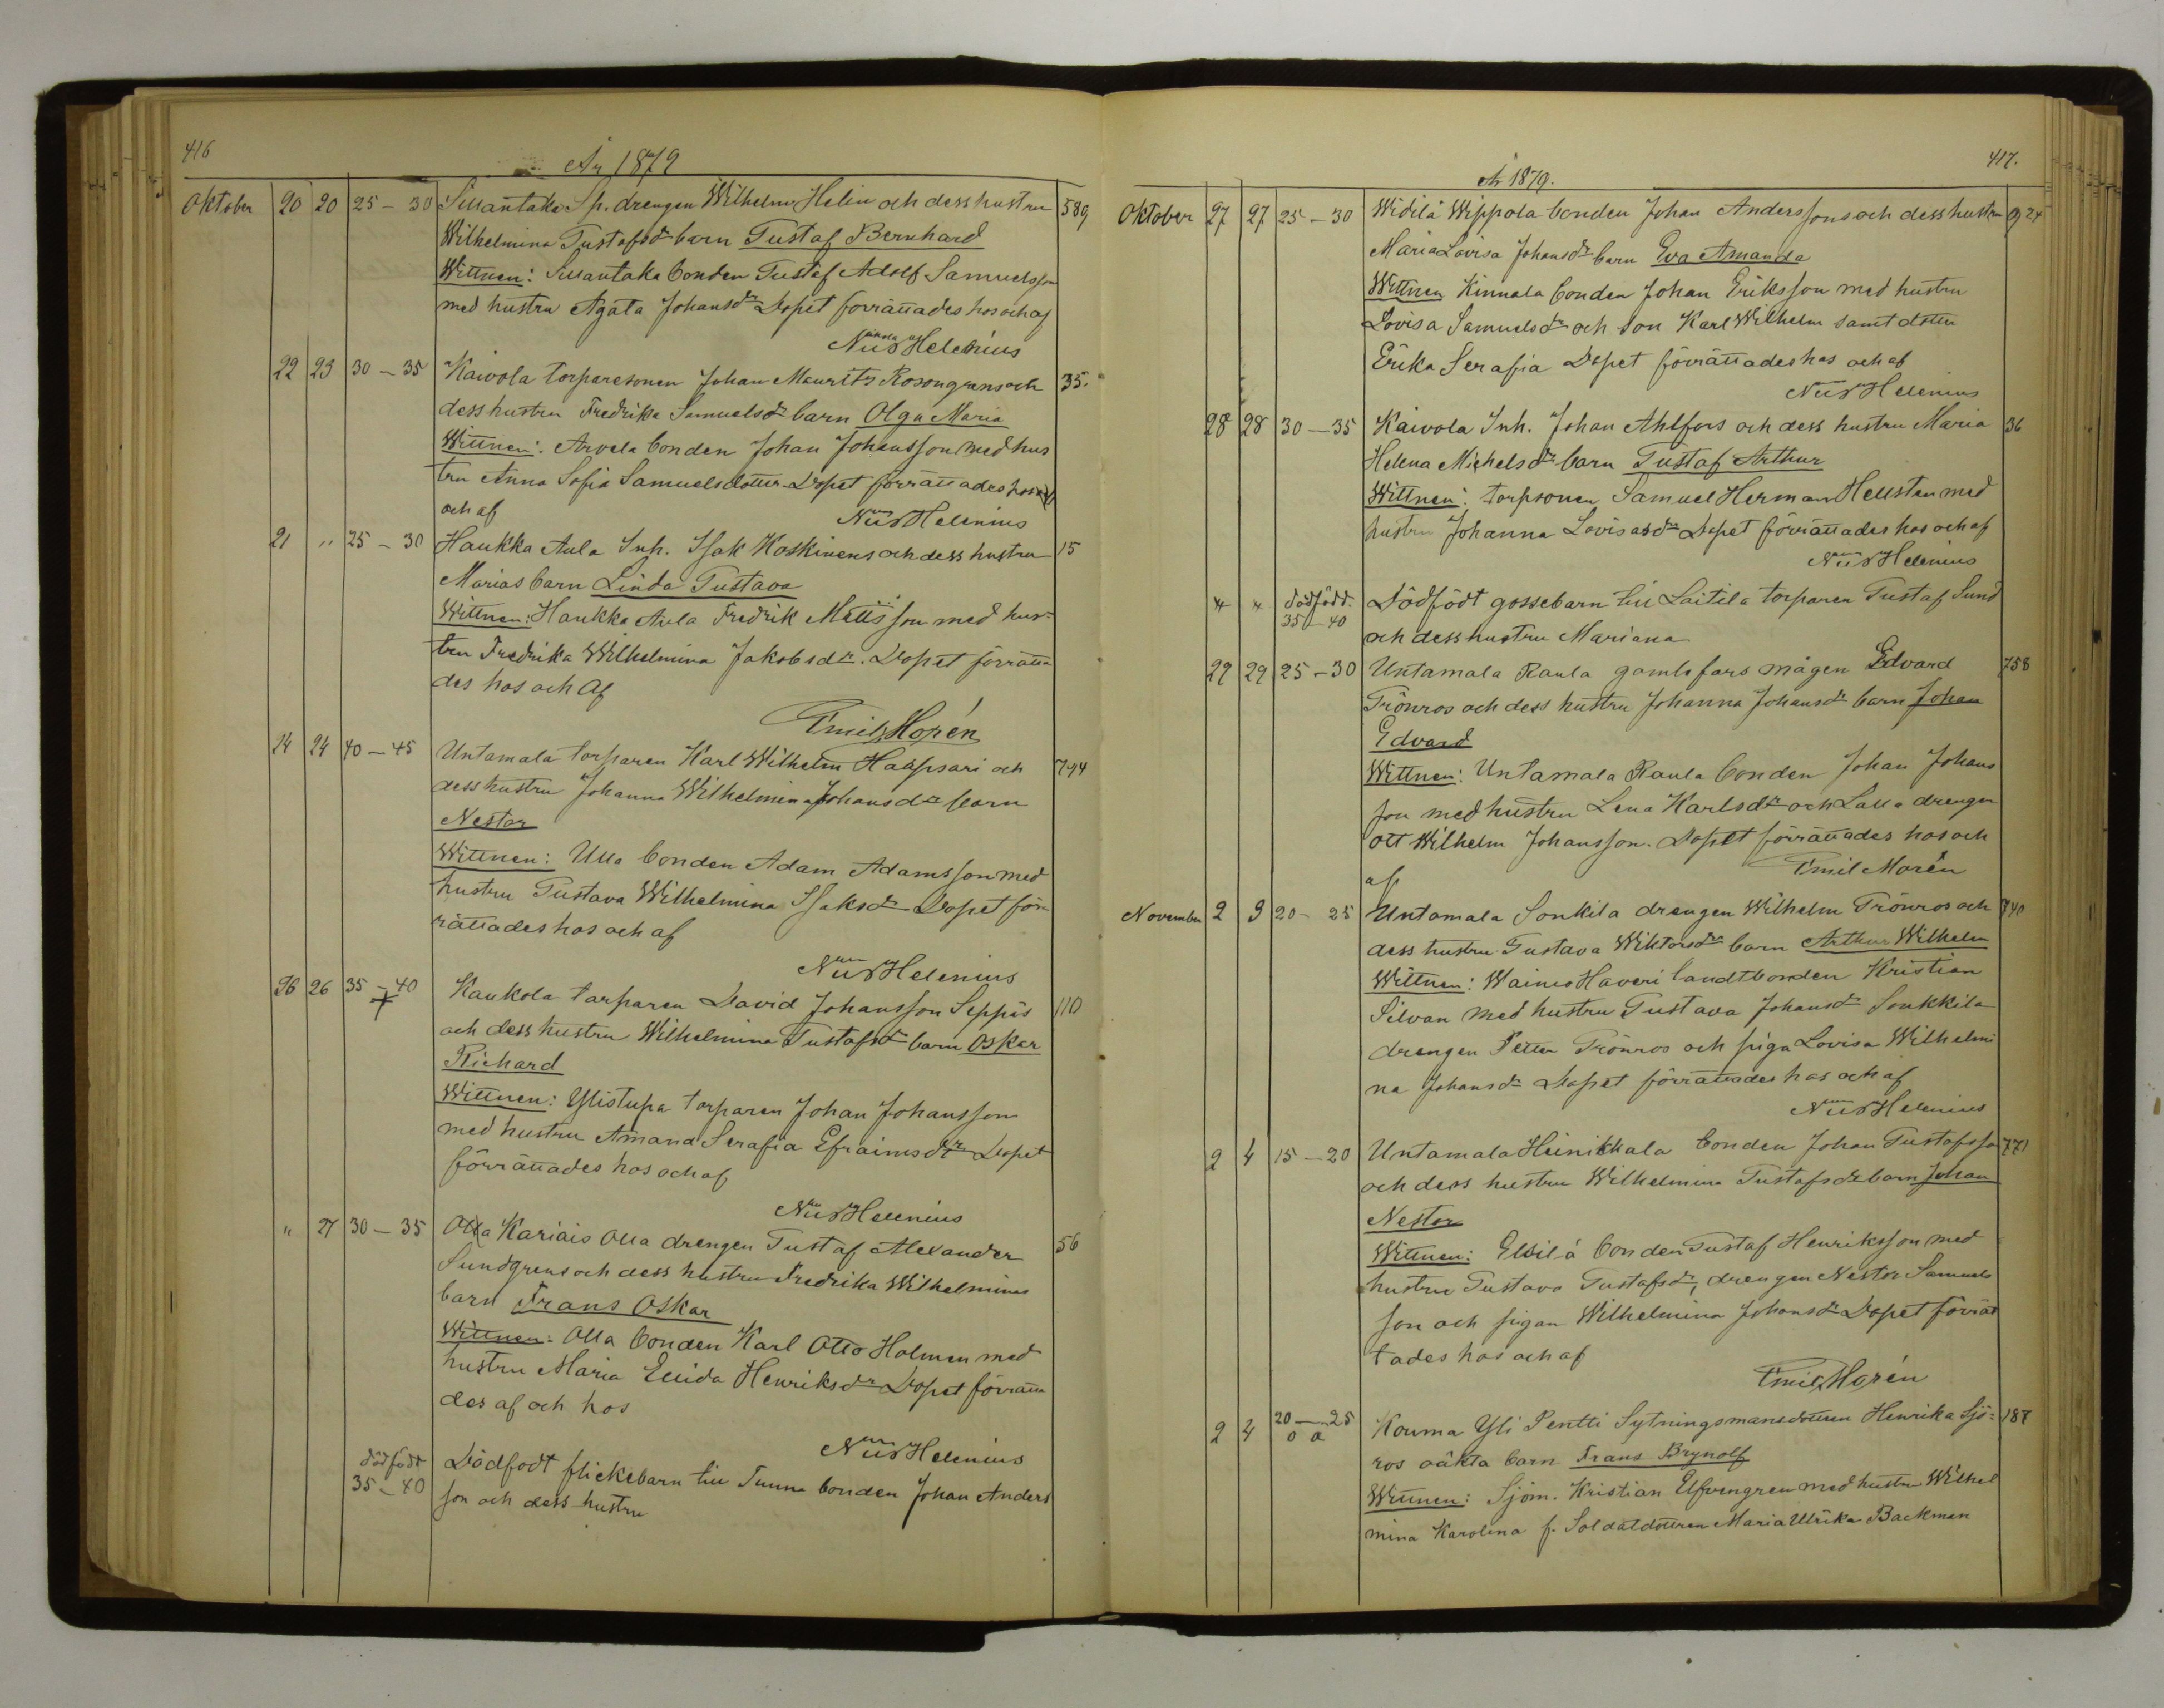 416
År 1879
Oktober 20 20 25 – 30 Sillantaka Sp. drengen Wilhelm Helin och dess hustru 589
Wilhelmina Gustafsdr barn Gustaf Bernhard
Wittnen: Sillantaka bonden Gustaf Adolf Samuelsson
med hustru Agata Johansdr Dopet förrättades hos och af
Nils Helenius
22 23 30 – 35 Kaivola torparesonen Johan Maurits Rosengrens och 35.
dess hustru Fredrika Samuelsdr barn Olga Maria
Wittnen: Arvela bonden Johan Johansson med hus
tru Anna Sofia Samuelsdotter Dopet förrättades hos
och af
Nils Helenius
21 " 25 – 30 Haukka Aula Inh. Isak Koskinens och dess hustru 15
Marias barn Linda Gustava
Wittnen: Haukka Aula Fredrik Mattsson med hus-
tru Fredrika Wilhelmina Jakobsdr. Dopet förrätta
des hos och af
Emil Morén
24 24 40 – 45 Untamala torparen Karl Wilhelm Haapsari och 794
dess hustru Johanna Wilhelmina Johansdr barn
Nestor
Wittnen: Ulla bonden Adam Adamsson med
hustru Gustava Wilhelmina Isaksdr Dopet för
rättades hos och af
Nils Helenius
26 26 35 – 40 Kaukola torparen David Johansson Seppäs 110
och dess hustru Wilhelmina Gustafsdr barn Oskar
Richard
Wittnen: Ylistupa torparen Johan Johansson
med hustru Amanda Serafia Efraimsdr Dopet
förrättades hos och af
Nils Helenius
" 27 30 – 35 Olla Kariais Olla drengen Gustaf Alexander 56
Sundgrens och dess hustru Fredrika Wilhelminas
barn Frans Oskar
Wittnen: Olla bonden Karl Otto Holmen med
hustru Maria Henriksdr Dopet förrätta
des af och hos
Nils Helenius
dödfödt
35 – 40 Dödfödt flickebarn till Tunna bonden Johan Anders
son och dess hustru
417.
År 1879.
Oktober 27 27 25 – 30 Widilä Wippola bonden Johan Anderssons och dess hustru 924
Maria Lovisa Johansdr barn Eva Amanda
Wittnen Kinnala bonden Johan Eriksson med hustru
Lovisa Samuelsdr och son Karl Wilhelm samt dotter
Erika Serafia Dopet förrättades hos och af
Nils Helenius
28 28 30 – 35 Kaivola Inh. Johan Ahlfors och dess hustru Maria 36
Helena Michelsdr barn Gustaf Arthur
Wittnen: torpsonen Samuel Herman Hellsten med
hustru Johanna Lovisasdr Dopet förrättades hos och af
Nils Helenius
" " dödfödt. Dödfödt gossebarn till Laitila torparen Gustaf Sund
35 – 40 och dess hustru Mariana
29 29 25 – 30 Untamala Raula gamlefars mågen Edvard 758
Grönros och dess hustru Johanna Johansdr barn Johan
Edvard
Wittnen: Untamala Raula bonden Johan Johans
son med hustru Lena Karlsdr och Lalla drengen
Ott Wilhelm Johansson. Dopet förrättades hos och
af
Emil Morén
November 2 3 20 – 25 Untamala Sonkila drengen Wilhelm Grönros och 740
dess hustru Gustava Wiktorsdr barn Arthur Wilhelm
Wittnen: Wainio Haveri landtbonden Kristian
Silvan med hustru Gustava Johansdr Sonkkila
drengen Petter Grönros och piga Lovisa Wilhelmi
na Johansdr Dopet förrättades hos och af
Nils Helenius
2 4 15 – 20 Untamala Heinikkala bonden Johan Gustafsson 771
och dess hustru Wilhelmina Gustafsdr barn Johan
Nestor
Wittnen: Elsilä bonden Gustaf Henriksson med
hustru Gustava Gustafsdr, drengen Nestor Samuels
son och pigan Wilhelmina Johansdr Dopet förrät
tades hos och af
Emil Morén
2 4 20 – 25 Kouma Yli Pentti Sytningsmansdottren Henrika Sjö= 187
o ä ros oäkta barn Frans Brynolf
Wittnen: Sjöm. Kristian Elfvengren med hustru Wilhel
mina Karolina f. Soldatdottren Maria Ulrika Backman